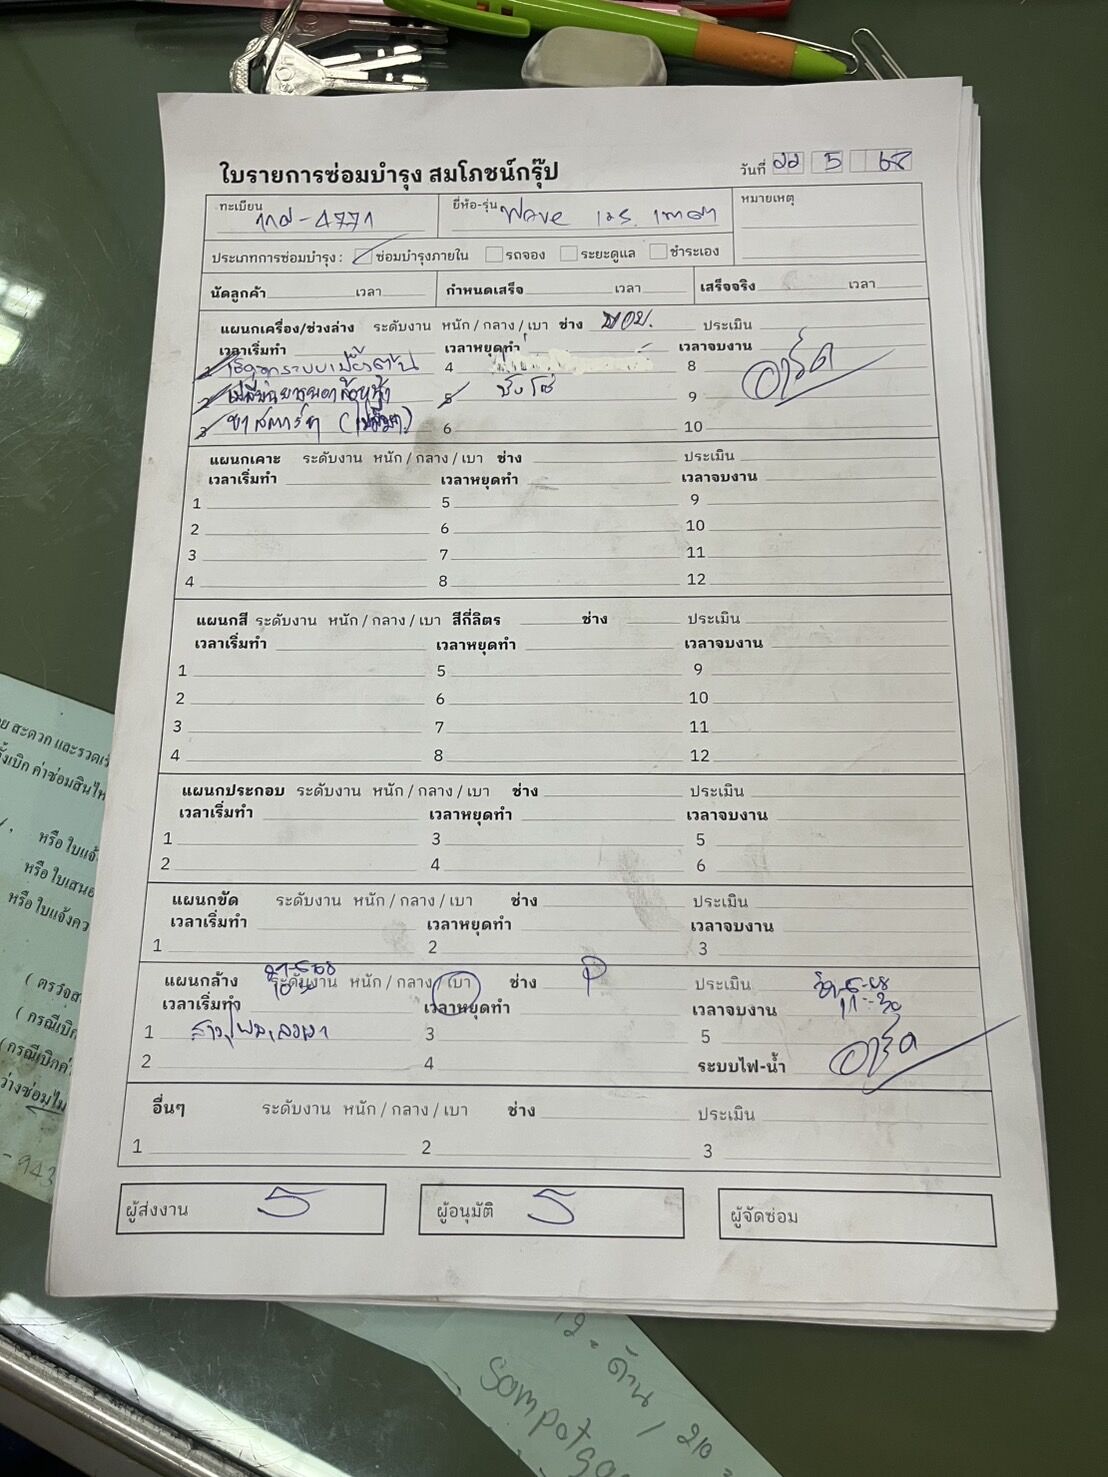 ใบรายการซ่อมบำรุง สมโภชน์กรุ๊ป
วันที่ 22 5 68
ทะเบียน 1กฮ-4771 ยี่ห้อ-รุ่น Wave เมร. เทาดำ หมายเหตุ
ประเภทการซ่อมบำรุง : ซ่อมบำรุงภายใน รถจอง ระยะดูแล ชำระเอง
นัดลูกค้า เวลา กำหนดเสร็จ เวลา เสร็จจริง เวลา
แผนกเครื่อง/ช่วงล่าง ระดับงาน หนัก / กลาง / เบา ช่าง ประเมิน
เวลาเริ่มทำ เวลาหยุดทำ เวลาจบงาน
1 เช็คระบบเบื้องต้น 4 8 อาร์ต
2 เปลี่ยนยางนอกล้อหน้า 5 9
3 ขาสตาร์ท (เปลี่ยน) 6 10
แผนกเคาะ ระดับงาน หนัก / กลาง / เบา ช่าง ประเมิน
เวลาเริ่มทำ เวลาหยุดทำ เวลาจบงาน
1 5 9
2 6 10
3 7 11
4 8 12
แผนกสี ระดับงาน หนัก / กลาง / เบา สีกี่ลิตร ช่าง ประเมิน
เวลาเริ่มทำ เวลาหยุดทำ เวลาจบงาน
1 5 9
2 6 10
3 7 11
4 8 12
แผนกประกอบ ระดับงาน หนัก / กลาง / เบา ช่าง ประเมิน
เวลาเริ่มทำ เวลาหยุดทำ เวลาจบงาน
1 3 5
2 4 6
แผนกขัด ระดับงาน หนัก / กลาง / เบา ช่าง ประเมิน
เวลาเริ่มทำ เวลาหยุดทำ เวลาจบงาน
1 2 3
แผนกล้าง ระดับงาน หนัก / กลาง / เบา ช่าง P
เวลาเริ่มทำ เวลาหยุดทำ เวลาจบงาน 11:30
1 3 5
2 4 ระบบไฟ-น้ำ อาร์ต
อื่นๆ ระดับงาน หนัก / กลาง / เบา ช่าง ประเมิน
1 2 3
ผู้ส่งงาน 5 ผู้อนุมัติ 5 ผู้จัดซ่อม
สะดวก และรวดเร็
เบิก ค่าซ่อมสินไห
หรือ ใบแจ้
หรือ ใบเสนอ
หรือ ใบแจ้งคว
( ตรวจส
( กรณีเบิก
(กรณีเบิกค่
ว่างซ่อมไม่
-943
12. ด้าน / 210